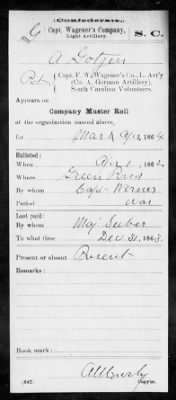 Confederate.
G Capt. Wagener's Company, S. C.
Light Artillery.
A Gotjen
Capt. F. W. Wagener's Co., L. Art'y
(Co. A, German Artillery),
South Carolina Volunteers.
Appears on
Company Muster Roll
of the organization named above,
for Mar & Apr, 1864
Enlisted:
When 1, 1862
Where Green Pond
By whom Capt Werner
Period war
Last paid:
By whom Maj Suber
To what time Dec 31, 1863.
Present or absent Present
Remarks:
Book mark:
(642) Copyist.